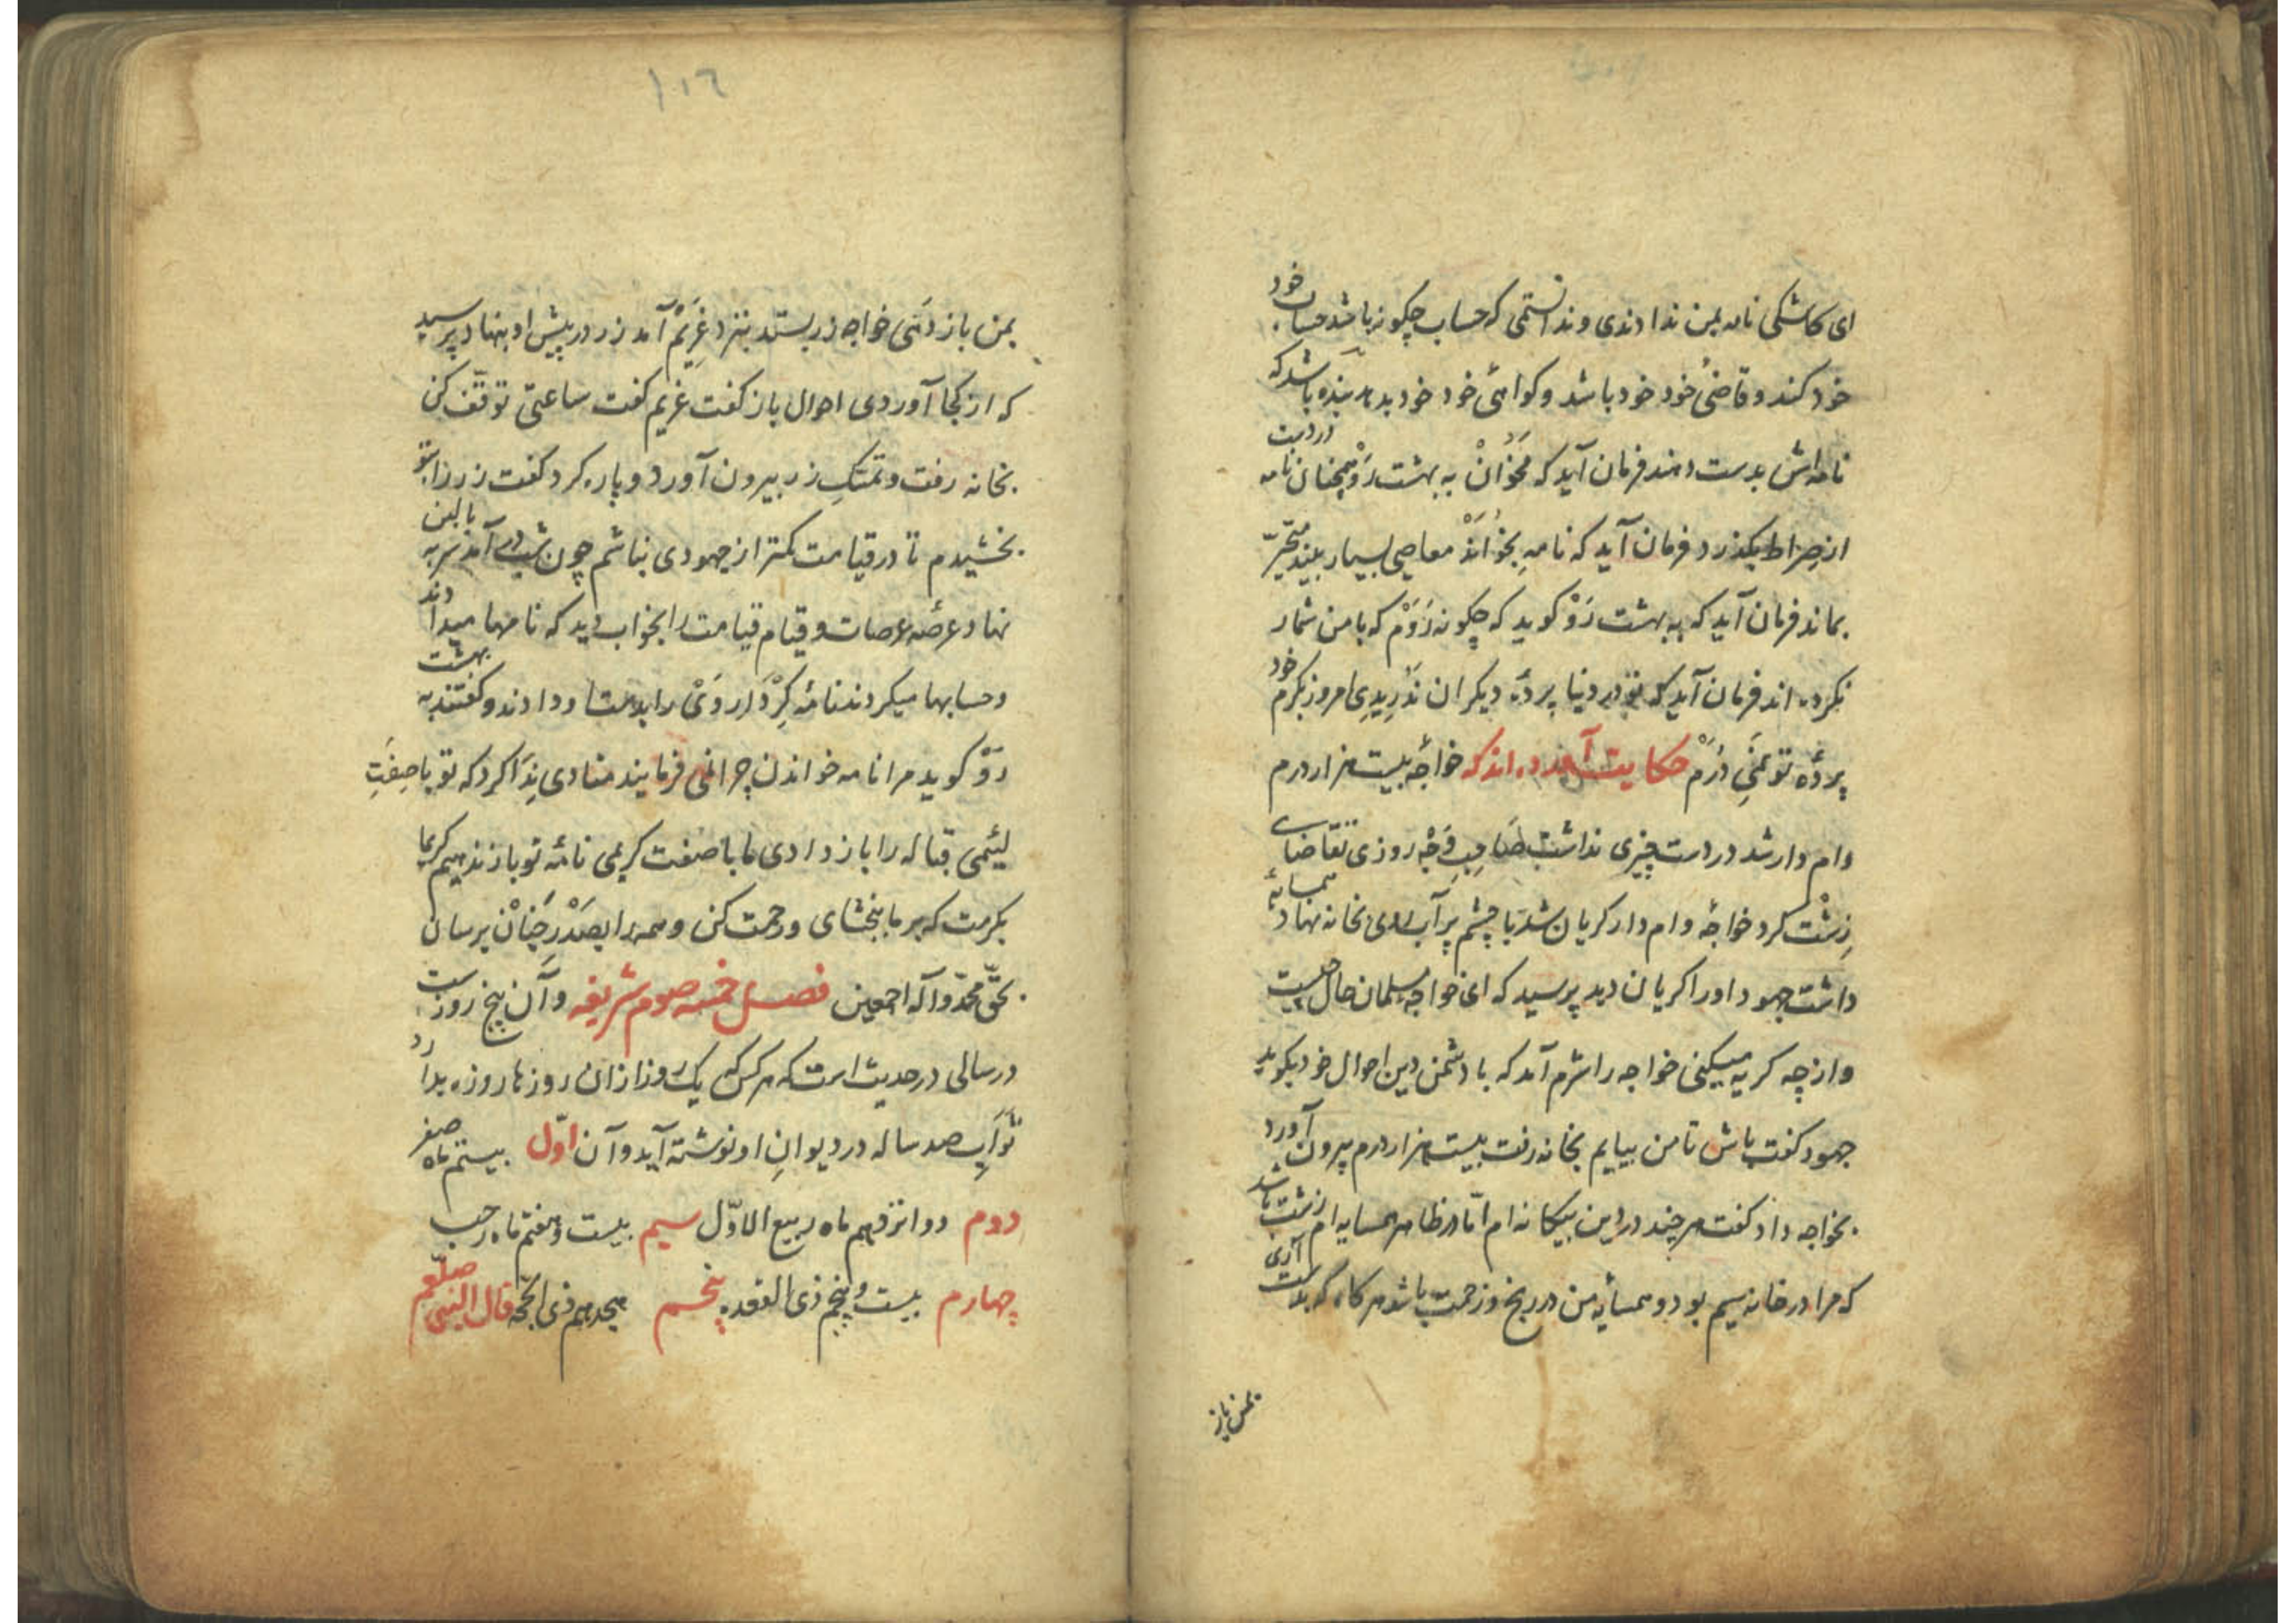 ای کاشکی نامه بمن ندادندی و ندانستمی که حساب چگونه باشد حساب خود
خود کند و قاضیٔ خود خود باشد و کواهئی خود خود بدهد بنده باشد که
نامه‌اش بدست دهند فرمان آید که مَخْوٰانْ به بهشت رَوْ همچنان نامه در دست
از صِراط بگذرد فرمان آید که نامه بِخوٰانَدْ معاصی بسیار بیند متحیّر
بماند فرمان آید که به بهشت رَوْ کوید که چکونه رَوَمْ که با من شمار
نکرده‌اند فرمان آید که تو در دنیا پردهٔ دیکران نَدَرِیدِی امروز بکرم خود
پردهٔ تو نَمَی دَرَمْ حکایت آورده‌اند که خواجهٔ بیست هزار درم
وام دار شد در دست چیزی نداشت صٰاحِبِ وَجْه روزی تقاضای
زِشْت کرد خواجهٔ وام دار کریان شد با چشم پر آب روی بخانه نهاد همسایهٔ
داشت جهود او را کریان دید پرسید که ای خواجه مسلمان حال چیست
و از چه کریه میکنی خواجه را شرم آمد که با دشمن دین احوال خود بکوید
جهود کفت باش تا من بیایم بخانه رفت بیست هزار درم بیرون آورد
بخواجه داد کفت هر چند در دین بیکانه‌ام امّا در ظاهر همسایه‌ام زشت باشد
که مرا در خانه سیم بود و همسأیه من در رنج و زحمت باشد هر کاه که بدست آری
بمن باز
١٠٦
بمن باز دَهَی خواجه زر بستد بنزد غَرِیْمْ آمد زر در پیش او بنهاد پرسید
که از کجا آوردی احوال باز کفت غریم کفت ساعتی توقّف کن
بخانه رفت و تمسّکِ زر بیرون آورد و پاره کرد کفت زر را بتو
بخشیدم تا در قیامت کمتر از جهودی نباشم چون شب در آمد سر به بالین
نهاد عرصهٔ عرصات و قیام قیامت را بخواب دید که نامها میدادند
و حسابها میکردند نامهٔ کِرْدٰار وَیْ را بدست او دادند و کفتند به بهشت
رَوْ کوید مرا نامه خواندن چرا نمی فرمایند منادی نِدَا کرد که تو با صِفَتِ
لئیمی قباله را باز دادی ما با صفت کریمی نامهٔ تو باز ندهیم کریما
بکرمت که بر ما ببخشای و رحمت کن و همه را بصَدْرِ جَنٰانْ برسان
بحقّ محمّد و آله اجمعین فصل خمسه صوم شریفه و آن پنج روزست
در سالی در حدیث است که هر کس که یک روز از آن روزها روزه بدارد
ثَوٰابِ صد ساله در دیوانِ او نوشته آید و آن اوّل بیستم ماه صفر
دوم دوانزدهم ماه ربیع الاوّل سیم بیست و هفتم ماه رجب
چهارم بیست و پنجم ذی القعده پنجم هجدهم ذی الحجّه قال النبی صلّعم